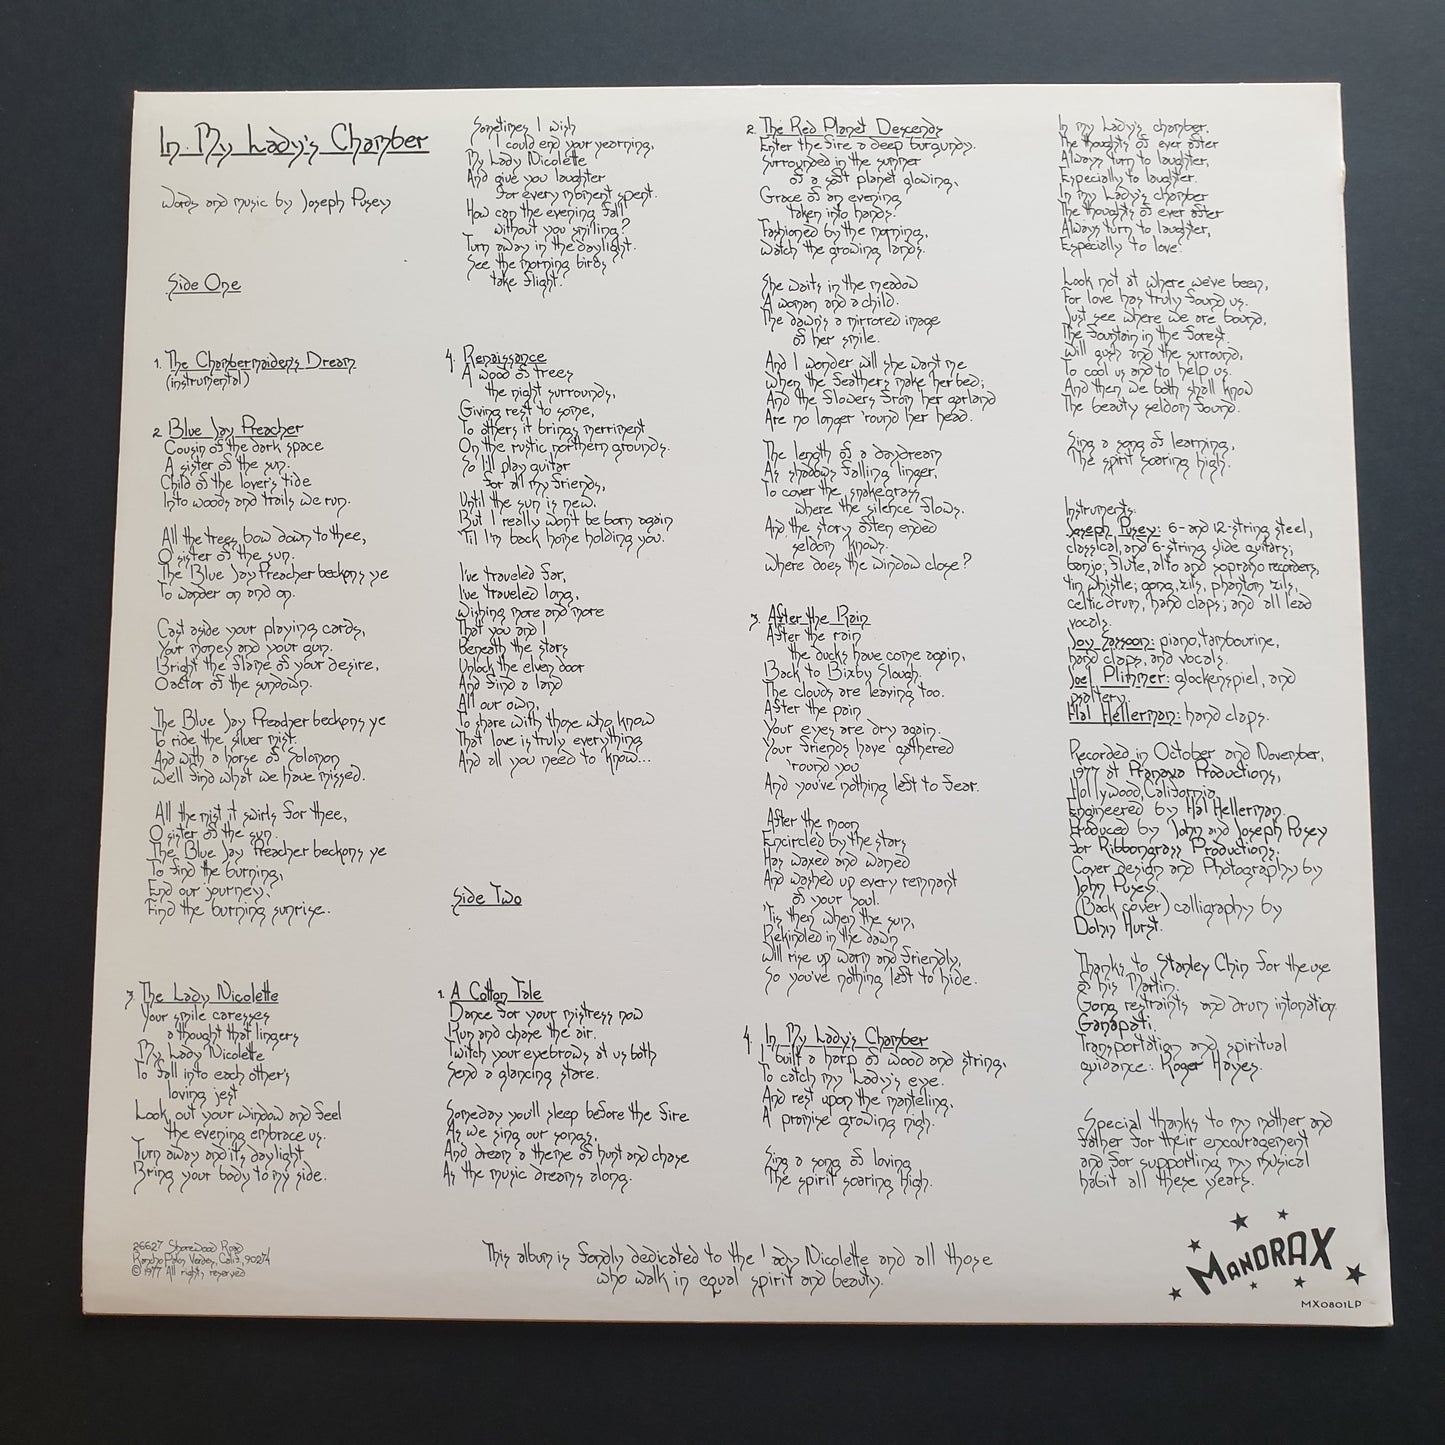 In My Lady's Chamber
Words and music by Joseph Pusey
Side One
1. The Chambermaiden's Dream
(instrumental)
2. Blue Jay Preacher
Cousin of the dark space
A sister of the sun.
Child of the lover's tide
Into woods and trails we run.
All the trees bow down to thee,
O sister of the sun.
The Blue Jay Preacher beckons ye
To wander on and on.
Cast aside your playing cards,
Your money and your gun.
Bright the flame of your desire,
O actor of the sundown.
The Blue Jay Preacher beckons ye
To ride the silver mist.
And with a horse of Solomon
We'll find what we have missed.
All the mist it swirls for thee,
O sister of the sun.
The Blue Jay Preacher beckons ye
To find the burning,
End our journey.
Find the burning sunrise.
3. The Lady Nicolette
Your smile caresses
a thought that lingers
My Lady Nicolette
To fall into each other's
loving jest
Look out your window and feel
the evening embrace us.
Turn away and it's daylight
Bring your body to my side.
Sometimes I wish
I could end your yearning,
My Lady Nicolette
And give you laughter
for every moment spent.
How can the evening fall
without you smiling?
Turn away in the daylight.
See the morning birds
take flight.
4. Renaissance
A wood of trees
the night surrounds,
Giving rest to some,
To others it brings merriment
On the rustic northern grounds.
So I'll play guitar
for all my friends,
Until the sun is new.
But I really won't be born again
'Til I'm back home holding you.
I've traveled far,
I've traveled long,
Wishing more and more
That you and I
Beneath the stars
Unlock the elven door
And find a land
All our own.
To share with those who know
That love is truly everything
And all you need to know...
Side Two
1. A Cotton Tale
Dance for your mistress now
Run and chase the air.
Twitch your eyebrows at us both
Send a glancing stare.
Someday you'll sleep before the fire
As we sing our songs,
And dream a theme of hunt and chase
As the music dreams along.
2. The Red Planet Descends
Enter the fire a deep burgundy.
Surrounded in the summer
of a soft planet glowing,
Grace of an evening
taken into hands.
Fashioned by the morning,
Watch the growing lands.
She waits in the meadow
A woman and a child.
The dawn's a mirrored image
of her smile.
And I wonder will she want me
When the feathers make her bed;
And the flowers from her garland
Are no longer 'round her head.
The length of a daydream
As shadows falling linger,
To cover the snakegrass
where the silence flows.
And the story often ended
seldom knows.
Where does the window close?
3. After the Rain
After the rain
the ducks have come again,
Back to Bixby Slough.
The clouds are leaving too.
After the pain
Your eyes are dry again.
Your friends have gathered
'round you
And you've nothing left to fear.
After the moon
Encircled by the stars
Has waxed and waned
And washed up every remnant
of your soul.
'Tis then when the sun,
Rekindled in the dawn
Will rise up warm and friendly,
So you've nothing left to hide.
4. In My Lady's Chamber
I built a harp of wood and string,
To catch my Lady's eye.
And rest upon the manteling,
A promise growing nigh.
Sing a song of loving
The spirit soaring high.
In my Lady's chamber.
The thoughts of ever after
Always turn to laughter,
Especially to laughter.
In my Lady's chamber
The thoughts of ever after
Always turn to laughter,
Especially to love.
Look not at where we've been,
For love has truly found us.
Just see where we are bound,
The fountain in the forest.
Will gush and the surround,
To cool us and to help us.
And then we both shall know
The beauty seldom found.
Sing a song of learning,
The spirit soaring high.
Instruments:
Joseph Pusey: 6- and 12-string steel,
classical, and 6-string slide guitars;
banjo; flute, alto and soprano recorders,
tin whistle; gong, zils, phantom zils,
celtic drum, hand claps; and all lead
vocals.
Joy Sassoon: piano, tambourine,
hand claps, and vocals.
Joel Plimmer: glockenspiel, and
psaltery.
Hal Hellerman: hand claps.
Recorded in October and November,
1977 at Pranava Productions,
Hollywood, California.
Engineered by Hal Hellerman.
Produced by John and Joseph Pusey
for Ribbongrass Productions.
Cover design and Photography by
John Pusey.
(Back cover) calligraphy by
Dohn Hurst.
Thanks to Stanley Chin for the use
of his Martin.
Gong restraints and drum intonation:
Ganapati.
Transportation and spiritual
guidance: Roger Hayes.
Special thanks to my mother and
father for their encouragement
and for supporting my musical
habit all these years.
26627 Shorewood Road
Rancho Palos Verdes, Calif., 90274
© 1977 All rights reserved
This album is fondly dedicated to the Lady Nicolette and all those
who walk in equal spirit and beauty.
MANDRAX
MX0801LP